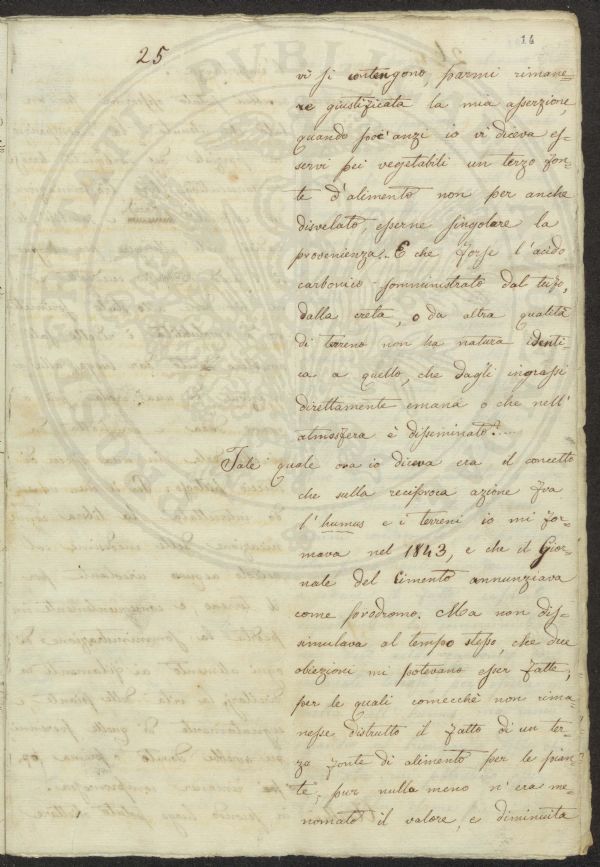 25
14
vi si contengono, parmi rimane-
re giustificata la mia asserzione,
quando poc'anzi io vi diceva es-
servi pei vegetabili un terzo fon-
te d'alimento non per anche
disvelato, esserne singolare la
provenienza. E che forse l'acido
carbonico somministrato dal tufo,
dalla creta, o da altra qualità
di terreno non ha natura identi-
ca a quello, che dagli ingrassi
direttamente emana o che nell'
atmosfera è disseminato?....
Tale quale ora io diceva era il concetto
che sulla reciproca azione fra
l'humus e i terreni io mi for-
mava nel 1843, e che il Gior-
nale del Cimento annunziava
come prodromo. Ma non dis-
simulava al tempo stesso, che due
obiezioni mi potevano esser fatte,
per le quali comecchè non rima-
nesse distrutto il fatto di un ter-
zo fonte di alimento per le pian-
te, pur nulla meno n'era me-
nomato il valore, e diminuita